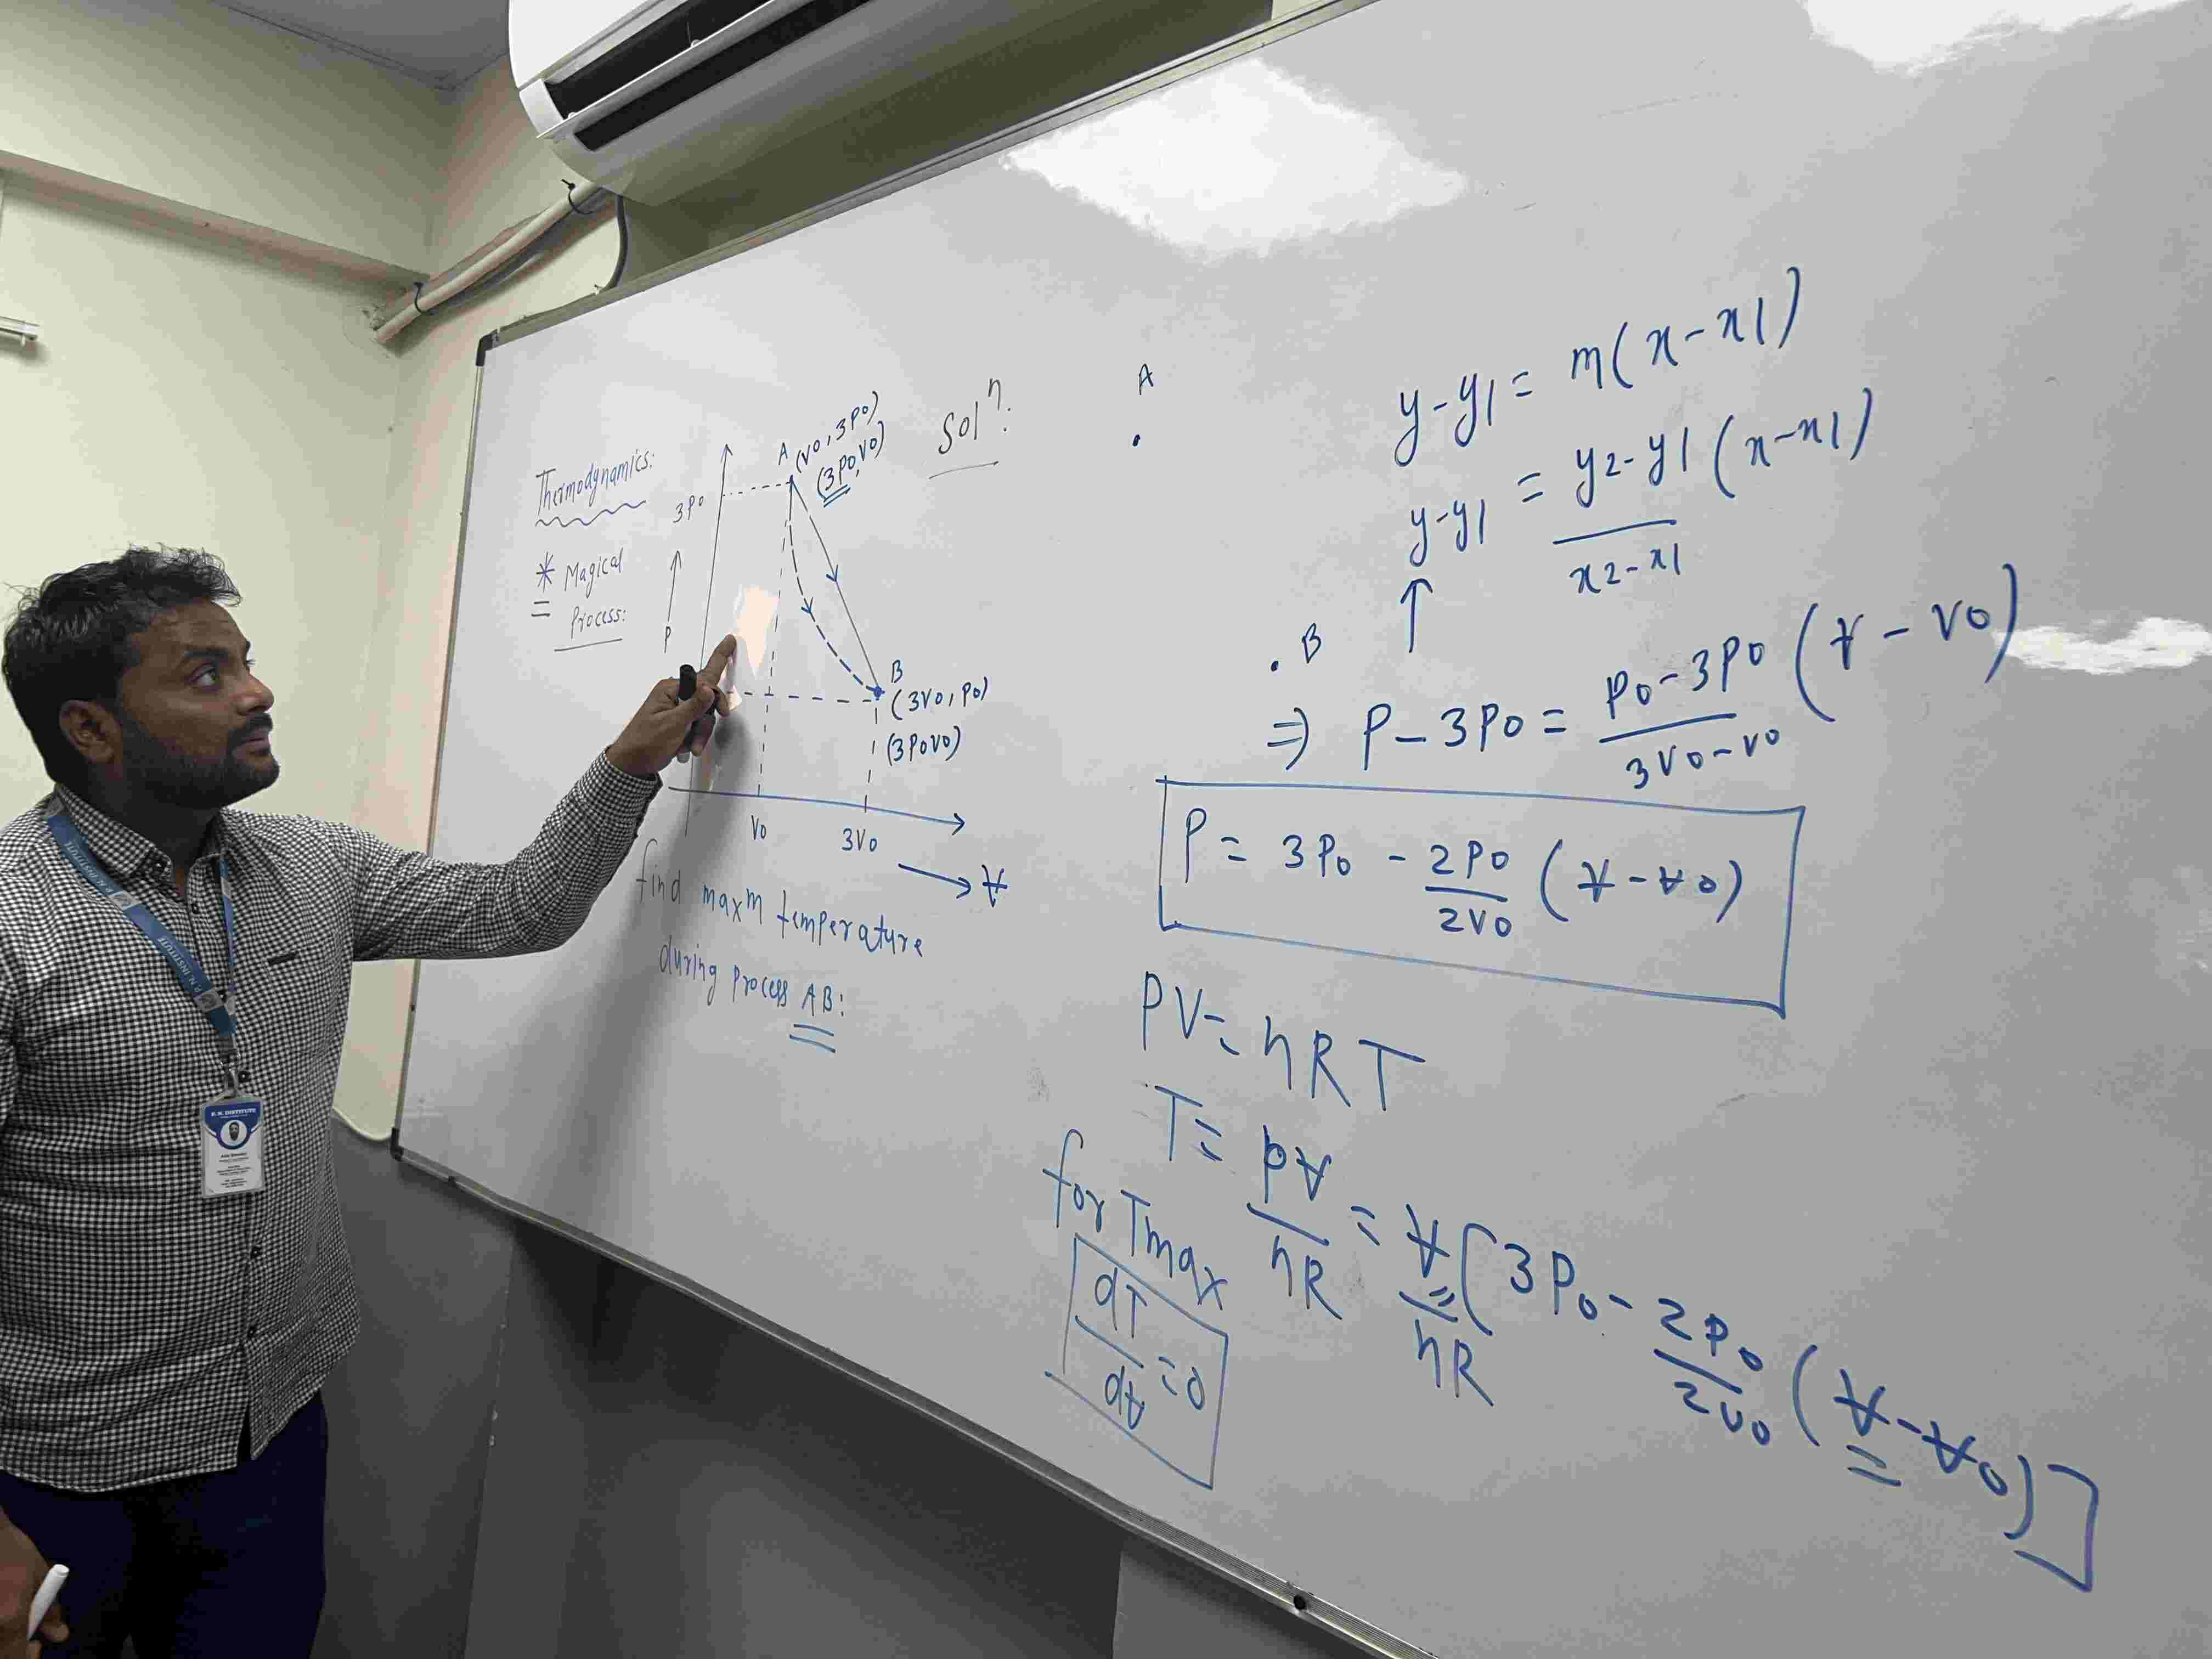 Thermodynamics:
* Magical
Process:
P
3P0
A
(V0, 3P0)
(3P0, V0)
B
(3V0, P0)
(3P0V0)
V0
3V0
V
find maxm temperature
during process AB:
Solⁿ:
A
B
y-y1 = m(x-x1)
y-y1 = y2-y1/x2-x1 (x-x1)
⇒ P-3P0 = P0-3P0/3V0-V0 (V-V0)
P = 3P0 - 2P0/2V0 (V-V0)
PV = nRT
T = PV/nR = V/nR [3P0 - 2P0/2V0 (V-V0)]
for Tmax
dT/dV = 0
P. N. INSTITUTE